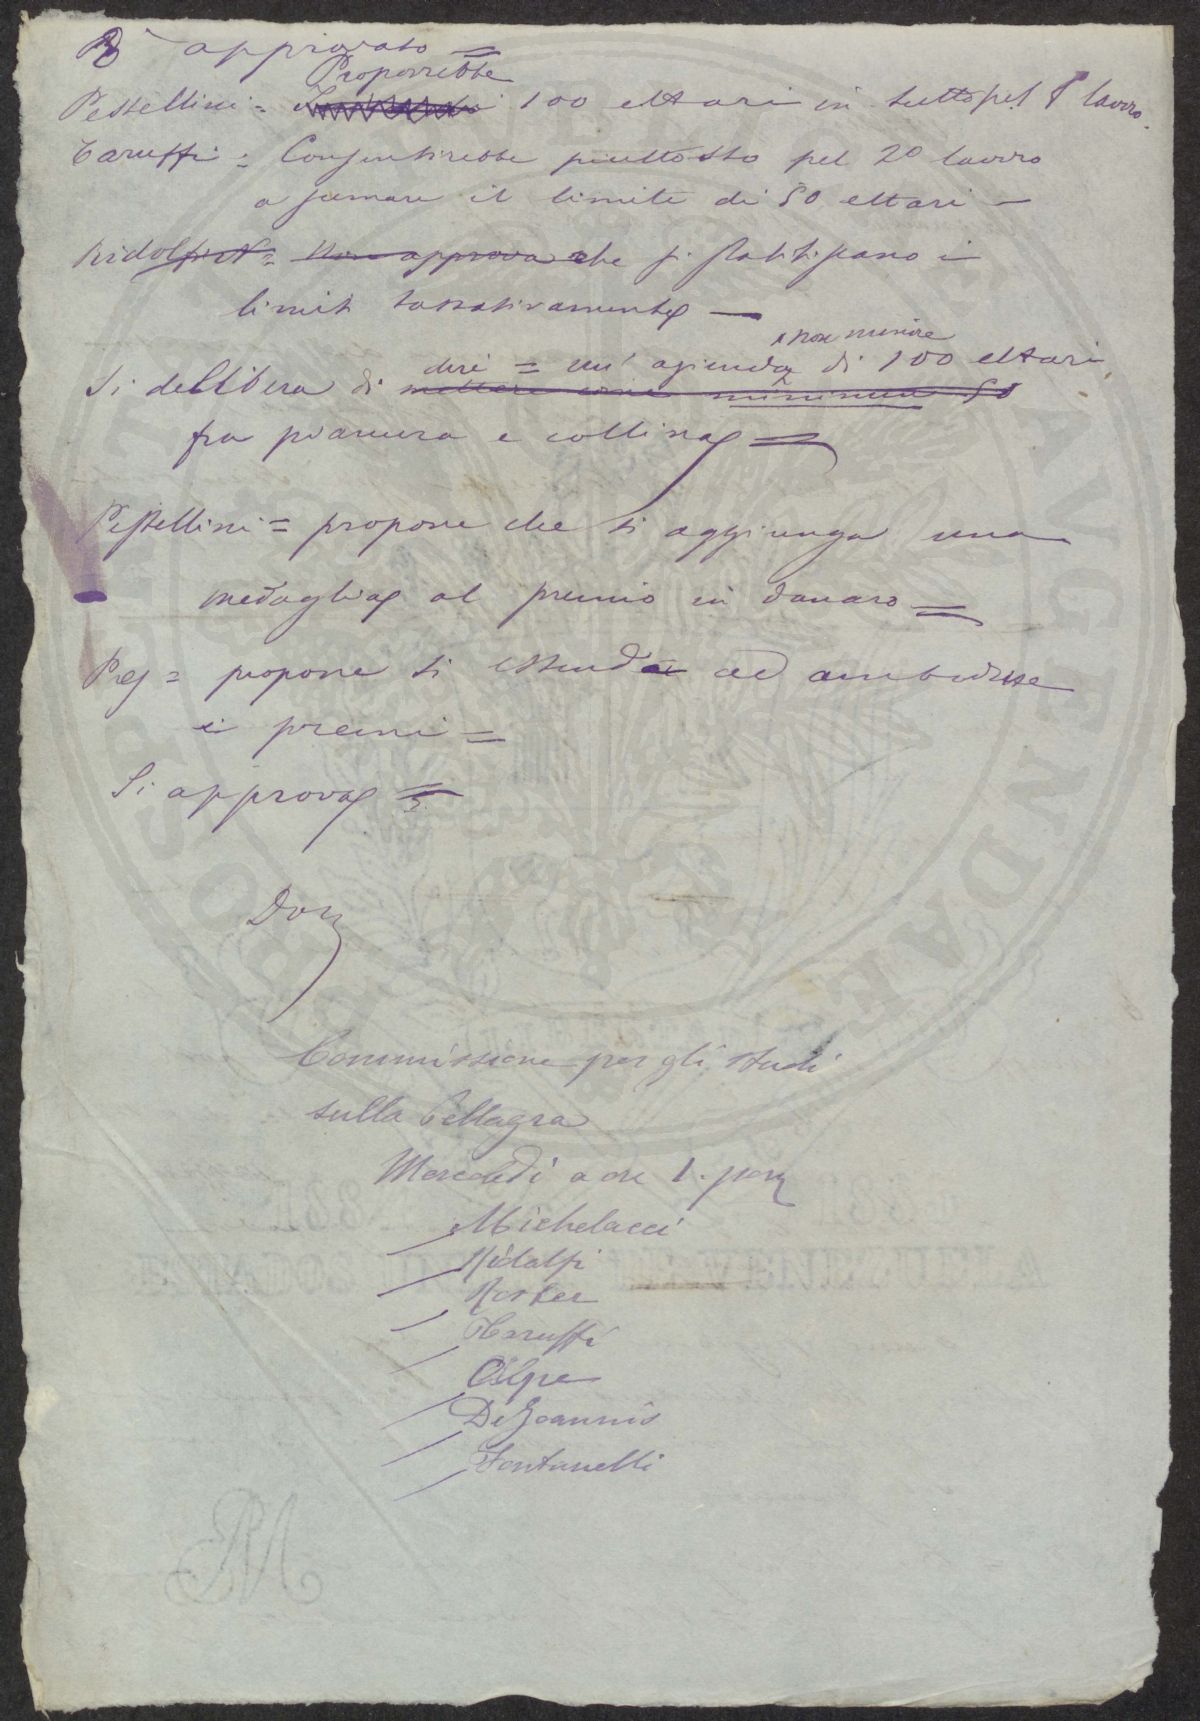 È approvato =
Proporrebbe
Pestellini = 100 ettari in tutto pel 1° lavoro.
Taruffi = Consentirebbe piuttosto pel 2° lavoro
a fermare il limite di 50 ettari —
Ridolfi = Non approva che si stabiliscano i
limiti tassativamente —
e non minore
dire = un' azienda di 100 ettari
Si delibera di mettere come minimum 50
fra pianura e collina =
Pestellini = propone che si aggiunga una
medaglia al premio in danaro =
Pres = propone si estenda ad ambedue
i premi =
Si approva =
Commissione per gli studi
sulla Pellagra
Mercoledì a ore 1. pom
Michelacci
Ridolfi
Roster
Taruffi
Alpe
De Joannis
Fontanelli